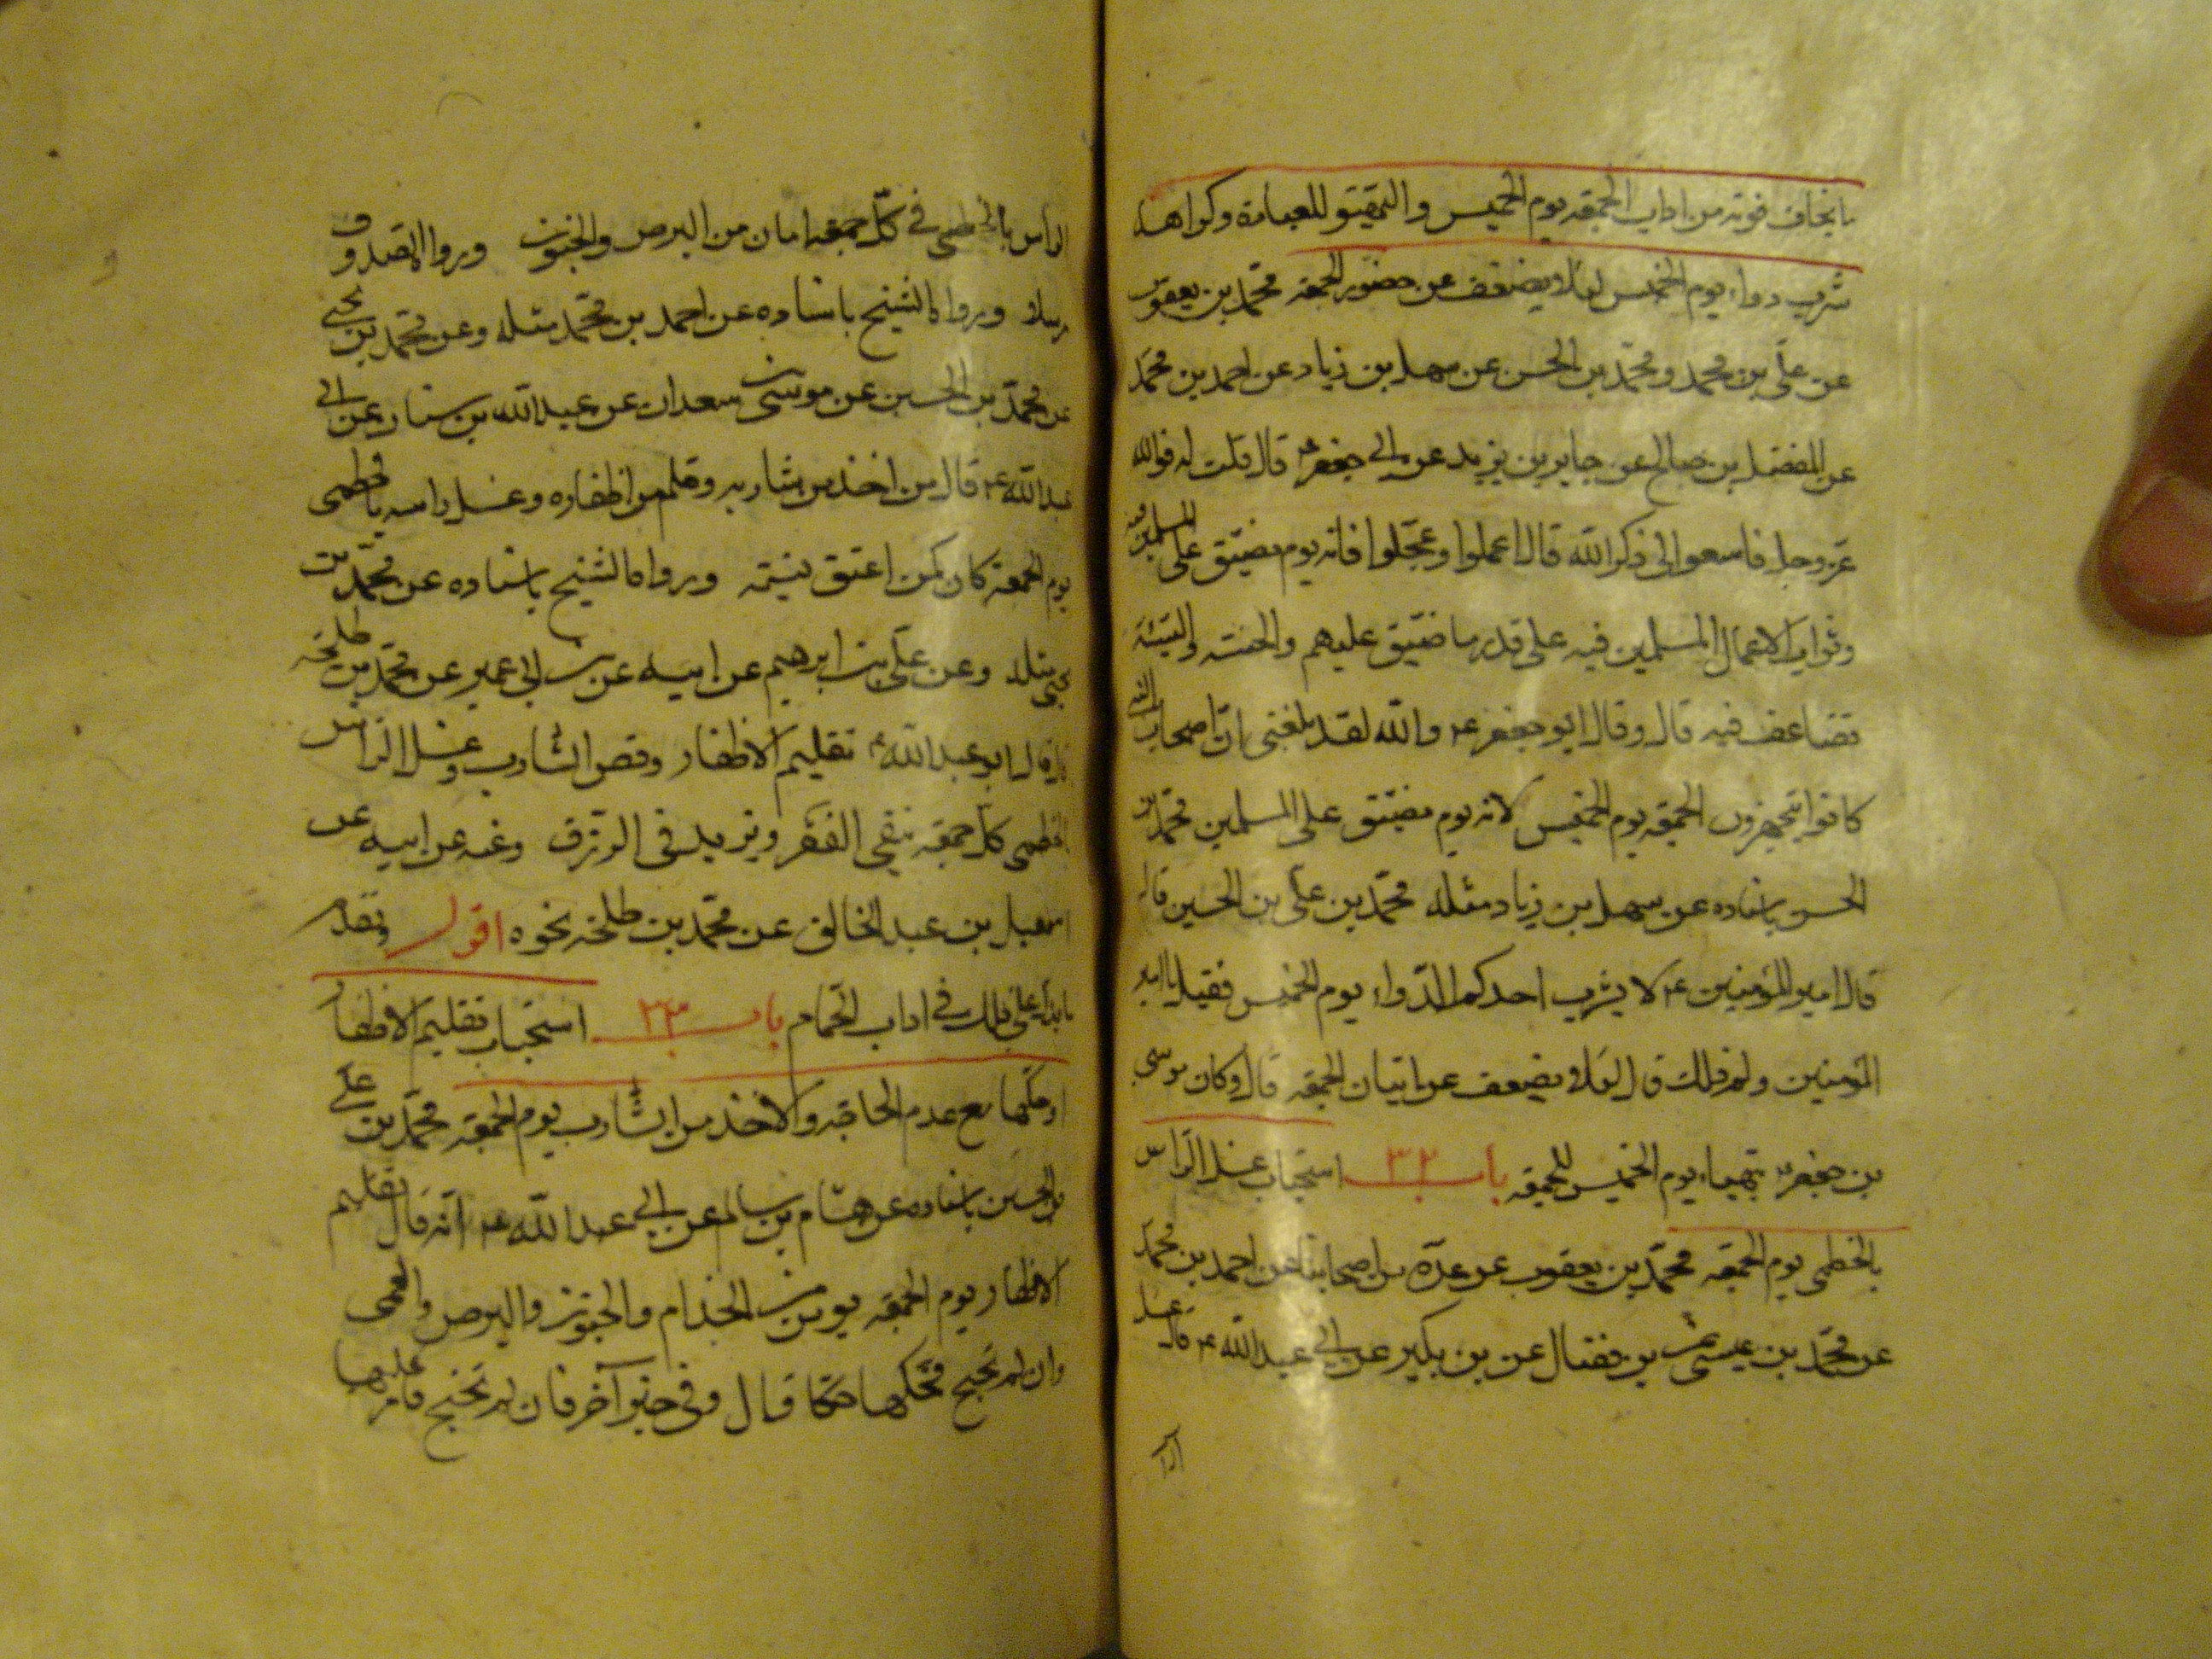 ما يخاف فوته من اداب الجمعه يوم الخميس والتهيؤ للعبادة وكراهة
شرب دواء يوم الخميس لئلا يضعف عن حضور الجمعه محمد بن يعقوب
عن علي بن محمد ومحمد بن الحسن عن سهل بن زياد عن احمد بن محمد
عن المفضل بن صالح عن جابر بن يزيد عن ابي جعفر ع قال قلت له قول الله
عز وجل فاسعوا الى ذكر الله قال اعملوا وعجلوا فانه يوم مضيق على المسلمين فيه
وثواب الاعمال المسلمين فيه على قدر ما ضيق عليهم والحسنه والسيئة
تضاعف فيه قال وقال ابو جعفر ع والله لقد بلغني ان اصحاب النبي
كانوا يتجهزون الجمعه يوم الخميس لانه يوم مضيق على المسلمين محمد بن
الحسن باسناده عن سهل بن زياد مثله محمد بن علي بن الحسين قال
قال امير المؤمنين ع لا يشرب احدكم الدواء يوم الخميس فقيل يا امير
المؤمنين ولم ذلك قال لئلا يضعف عن اتيان الجمعه قال وكان موسى
بن جعفر ع يتهياء يوم الخميس للجمعه باب ٣٢ استحباب غسل الراس
بالخطمى يوم الجمعه محمد بن يعقوب عن عدة من اصحابنا عن احمد بن محمد
عن محمد بن عيسى عن بن فضال عن بن بكير عن ابي عبد الله ع قال غسل
الراس بالخطمى في كل جمعه امان من البرص والجنون ورواه الصدوق
مرسلا ورواه الشيخ باسناده عن احمد بن محمد مثله وعن محمد بن يحيى
عن محمد بن الحسين عن موسى بن سعدان عن عبد الله بن سنان عن ابي
عبد الله ع قال من اخذ من شاربه وقلم من اظفاره وغسل راسه بالخطمى
يوم الجمعه كان كمن اعتق نسمه ورواه الشيخ باسناده عن محمد بن
يحيى مثله وعن علي بن ابرهيم عن ابيه عن بن ابي عمير عن محمد بن طلحه
قال قال ابو عبد الله ع تقليم الاظفار وقص الشارب وغسل الراس
بالخطمى كل جمعه ينفي الفقر ويزيد في الرزق وعنه عن ابيه عن
اسمعيل بن عبد الخالق عن محمد بن طلحه نحوه اقول وتقدم
ما يدل على ذلك في اداب الحمام باب ٣٣ استحباب تقليم الاظفار
او حكها مع عدم الحاجه والاخذ من الشارب يوم الجمعه محمد بن علي
بن الحسين باسناده عن هشام بن سالم عن ابي عبد الله ع انه قال تقليم
الاظفار يوم الجمعه يومن من الجذام والجنون والبرص والعمى
وان لم تحتج فحكها حكا قال وفي خبر آخر فان لم تحتج فامر عليها